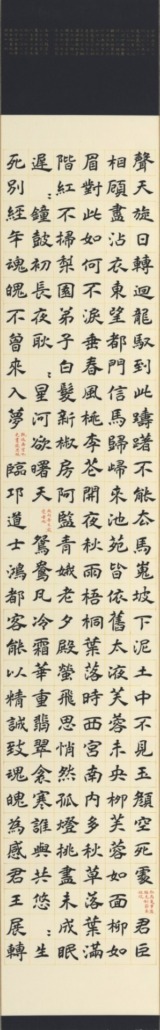 聲天旋日轉迴龍馭到此躊躇不能去馬嵬坡下泥土中不見玉顏空死處君臣
相顧盡沾衣東望都門信馬歸歸來池苑皆依舊太液芙蓉未央柳芙蓉如面柳如
眉對此如何不淚垂春風桃李花開夜秋雨梧桐葉落時西宮南內多秋草落葉滿
階紅不掃梨園弟子白髮新椒房阿監青娥老夕殿螢飛思悄然孤燈挑盡未成眠
遲〻鐘鼓初長夜耿〻星河欲曙天鴛鴦瓦冷霜華重翡翠衾寒誰與共悠〻生
死別經年魂魄不曾來入夢臨邛道士鴻都客能以精誠致魂魄為感君王展轉